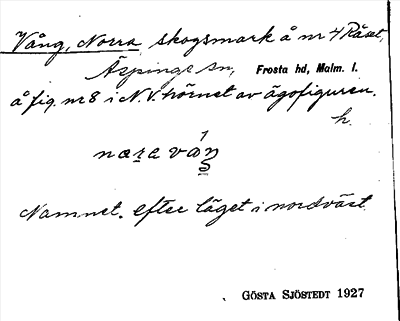 Vång, Norra, skogsmark å nr 4 Råset,
Äspinge sn, Frosta hd, Malm. l.
å fig. nr 8 i N.V. hörnet av ägofiguren.
h.
Namnet. efter läget i nordväst.
GÖSTA SJÖSTEDT 1927